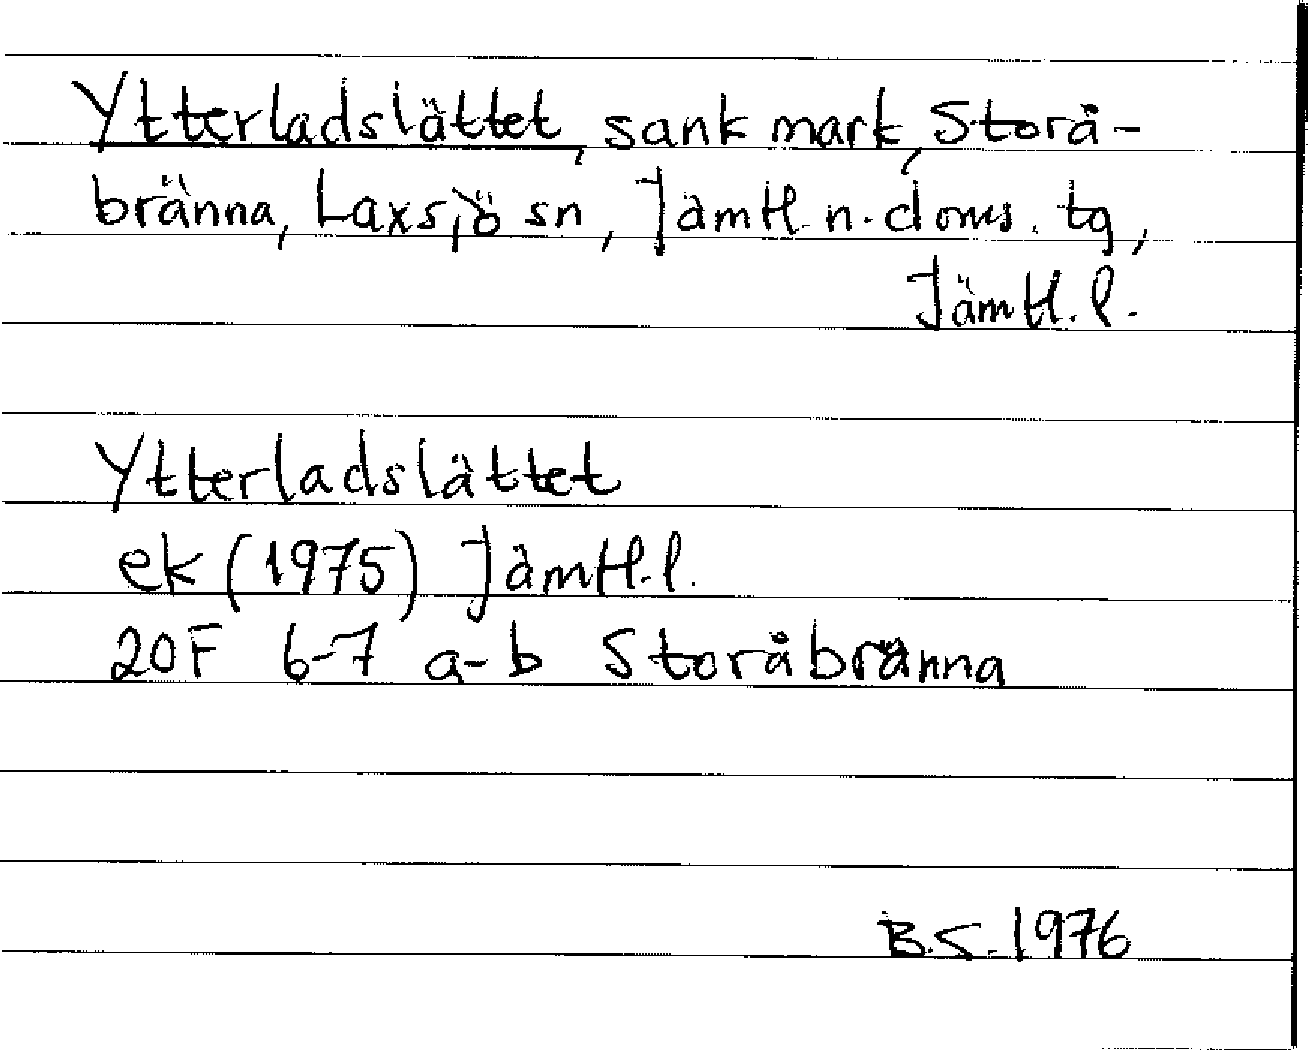 Ytterladslättet, sank mark, Storå-
bränna, Laxsjö sn, Jämtl. n. doms. tg,
Jämtl. l.
Ytterladslättet
ek (1975) Jämtl. l.
20F 6-7 a-b Storåbränna
B.S. 1976